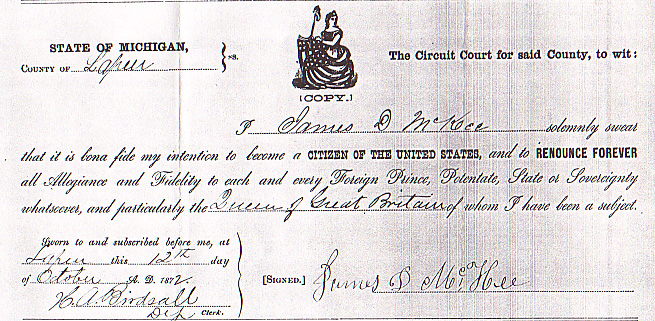 STATE OF MICHIGAN,
COUNTY OF Lapeer } ss.
The Circuit Court for said County, to wit:
[COPY.]
I James D McKee solemnly swear
that it is bona fide my intention to become a CITIZEN OF THE UNITED STATES, and to RENOUNCE FOREVER
all Allegiance and Fidelity to each and every Foreign Prince, Potentate, State or Sovereignty
whatsoever, and particularly the Queen of Great Britain of whom I have been a subject.
Sworn to and subscribed before me, at
Lapeer this 12th day
of October A. D. 1872.
H. A. Birdsall
Dep Clerk.
[SIGNED.] James D McKee